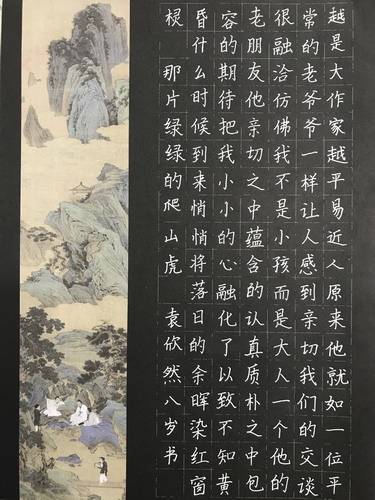 越是大作家越平易近人原来他就如一位平
常的老爷爷一样让人感到亲切我们的交谈
很融洽仿佛我不是小孩而是大人一个他的
老朋友他亲切之中蕴含的认真质朴之中包
容的期待把我小小的心融化了以致不知黄
昏什么时候到来悄悄将落日的余晖染红窗
棂 那片绿绿的爬山虎 袁欣然八岁书